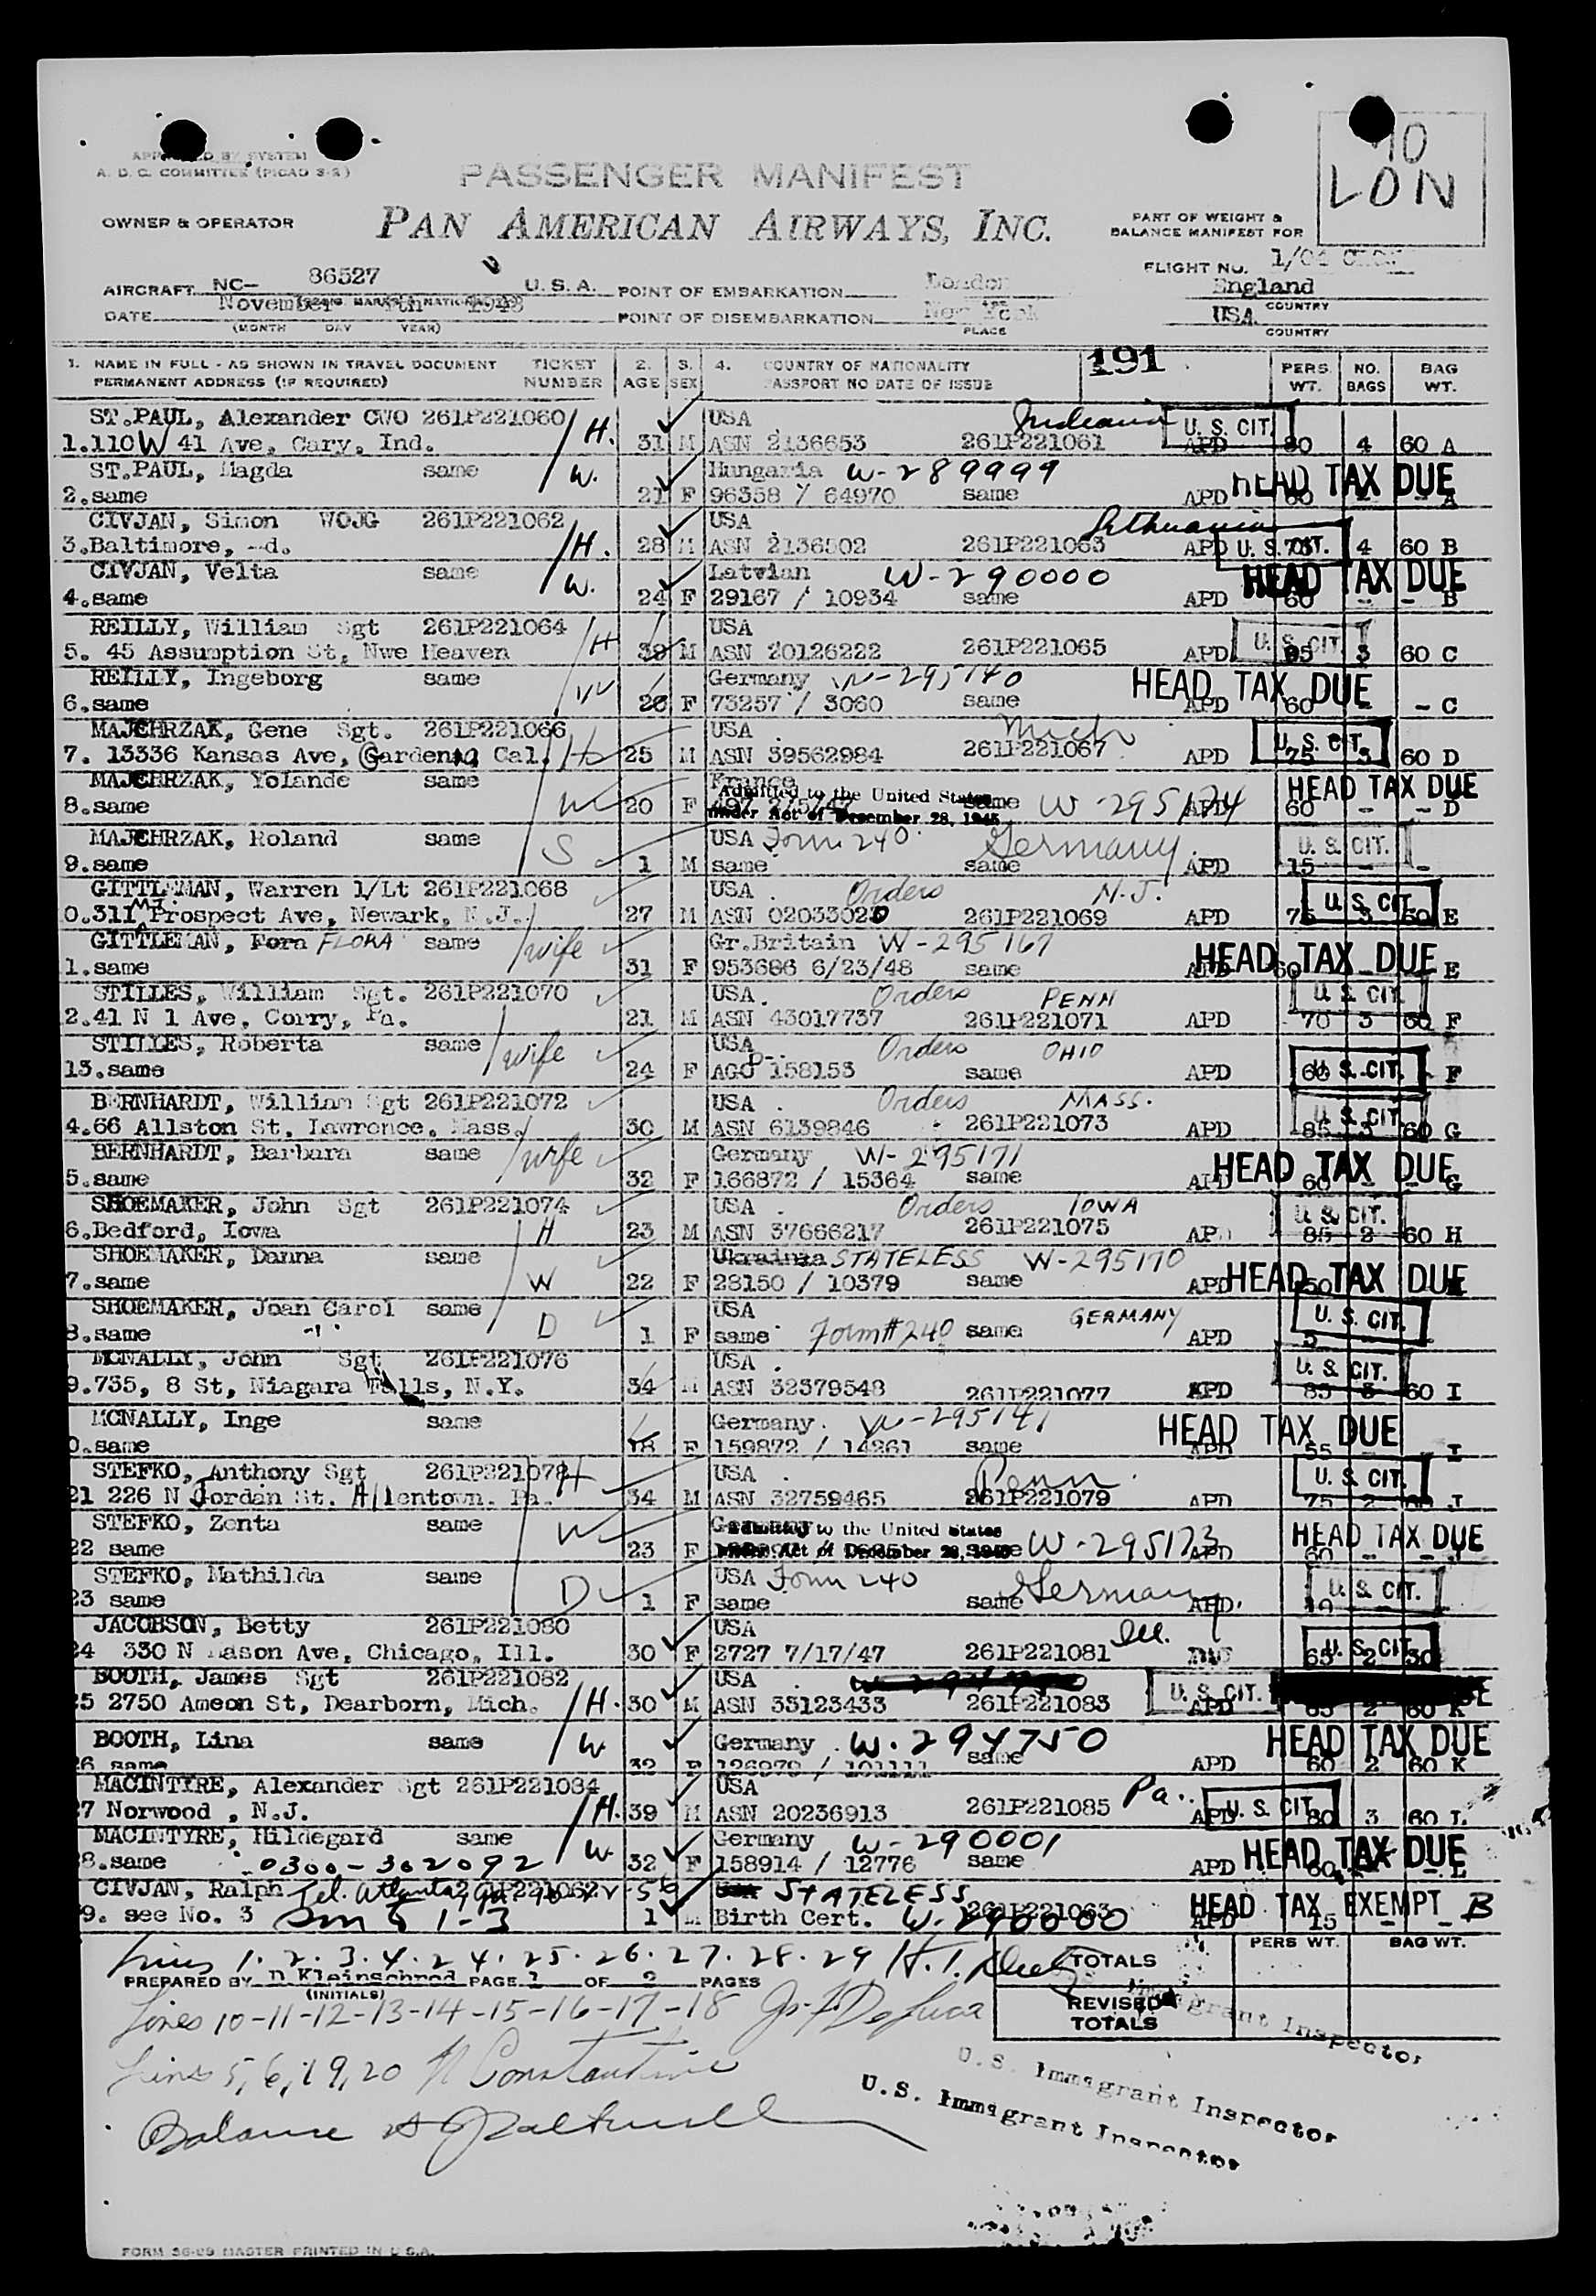 APPROVED BY SYSTEM
A. D. C. COMMITTEE (PICAO 3-2)
PASSENGER MANIFEST
10
LON
OWNER & OPERATOR
PAN AMERICAN AIRWAYS, INC.
PART OF WEIGHT &
BALANCE MANIFEST FOR
AIRCRAFT NC- 86527 U. S. A.
POINT OF EMBARKATION London England
FLIGHT NO. 1/04
COUNTRY
DATE November 1948
(MONTH DAY YEAR)
POINT OF DISEMBARKATION New York USA
PLACE
COUNTRY
1. NAME IN FULL - AS SHOWN IN TRAVEL DOCUMENT TICKET 2. 3. 4. COUNTRY OF NATIONALITY 191 PERS. NO. BAG
PERMANENT ADDRESS (IF REQUIRED) NUMBER AGE SEX PASSPORT NO DATE OF ISSUE WT. BAGS WT.
ST.PAUL, Alexander CWO 261P221060 H. USA Indiana U. S. CIT.
1.110 W 41 Ave, Gary, Ind. 31 M ASN 2136653 261P221061 APD 80 4 60 A
ST.PAUL, Magda same W. Hungaria W-289999 HEAD TAX DUE
2.same 21 F 96358 / 64970 same APD 60 - - A
CIVJAN, Simon WOJG 261P221062 USA Lithuania U. S. CIT.
3.Baltimore, Md. H. 28 M ASN 2136502 261P221063 APD 75 4 60 B
CIVJAN, Velta same W. Latvian W-290000 HEAD TAX DUE
4.same 24 F 29167 / 10934 same APD 60 - - B
REILLY, William Sgt 261P221064 H USA U. S. CIT.
5. 45 Assumption St, Nwe Heaven M ASN 20126222 261P221065 APD 85 3 60 C
REILLY, Ingeborg same W Germany W-295140 HEAD TAX DUE
6.same F 73257 / 3060 same APD 60 - - C
MAJCHRZAK, Gene Sgt. 261P221066 USA Mich U. S. CIT.
7. 13336 Kansas Ave, Gardena, Cal. H 25 M ASN 39562984 261P221067 APD 75 3 60 D
MAJCHRZAK, Yolande same W France Admitted to the United States HEAD TAX DUE
8.same 20 F under Act of December 28, 1945 same W-295174 APD 60 - - D
MAJCHRZAK, Roland same S USA Form 240 Germany U. S. CIT.
9.same 1 M same same APD 15 - -
GITTLEMAN, Warren 1/Lt 261P221068 USA Orders N.J. U. S. CIT.
0.311 Mt. Prospect Ave, Newark, N.J. 27 M ASN 02033020 261P221069 APD 75 3 60 E
GITTLEMAN, Forn FLORA same wife Gr.Britain W-295167 HEAD TAX DUE
1.same 31 F 953686 6/23/48 same APD 60 - E
STILLES, William Sgt. 261P221070 USA. Orders PENN U. S. CIT.
2.41 N 1 Ave, Corry, Pa. 21 M ASN 43017737 261P221071 APD 70 3 60 F
STILLES, Roberta same wife USA Orders OHIO
13.same 24 F AGO D-158153 same APD 60 U. S. CIT. F
BERNHARDT, William Sgt 261P221072 USA Orders MASS. U. S. CIT.
4.66 Allston St, Lawrence, Mass. 30 M ASN 6139846 261P221073 APD 85 3 60 G
BERNHARDT, Barbara same wife Germany W-295171 HEAD TAX DUE
5.same 32 F 166872 / 15364 same APD 60 - - G
SHOEMAKER, John Sgt 261P221074 USA Orders IOWA U. S. CIT.
6.Bedford, Iowa H 23 M ASN 37666217 261P221075 APD 85 2 60 H
SHOEMAKER, Danna same Ukrainia STATELESS W-295170
7.same W 22 F 28150 / 10379 same APD HEAD TAX DUE
SHOEMAKER, Joan Carol same USA GERMANY U. S. CIT.
8.same D 1 F same Form # 240 same APD 5
MCNALLY, John Sgt 261P221076 USA U. S. CIT.
9.735, 8 St, Niagara Falls, N.Y. 34 M ASN 32379548 261P221077 APD 85 3 60 I
MCNALLY, Inge same Germany W-295141 HEAD TAX DUE
0.same 18 F 159872 / 14261 same APD 55 - I
STEFKO, Anthony Sgt 261P221078 H USA Penn U. S. CIT.
21 226 N Jordan St. Allentown. Pa. 34 M ASN 32759465 261P221079 APD 75 2 60 J
STEFKO, Zenta same W Germany Admitted to the United States HEAD TAX DUE
22 same 23 F under Act of December 28, 1945 same W-295173 APD 60 - - J
STEFKO, Mathilda same USA Form 240 Germany U. S. CIT.
23 same D 1 F same same APD. 10
JACOBSON, Betty 261P221080 USA Ill.
24 330 N Mason Ave, Chicago, Ill. 30 F 2727 7/17/47 261P221081 65 2 30 U. S. CIT.
BOOTH, James Sgt 261P221082 USA
25 2750 Ameon St, Dearborn, Mich. H. 30 M ASN 35123433 261P221083 APD U. S. CIT. 85 2 60 K
BOOTH, Lina same W Germany W-294750 HEAD TAX DUE
26 same 32 F 126979 / 101111 same APD 60 2 60 K
MACINTYRE, Alexander Sgt 261P221084 USA Pa.
7 Norwood , N.J. H. 39 M ASN 20236913 261P221085 APD U. S. CIT. 80 3 60 L
MACINTYRE, Hildegard same W. Germany W-290001 HEAD TAX DUE
8.same 0300-302092 32 F 158914 / 12776 same APD 60 - - L
CIVJAN, Ralph 261P221062 Tel. Atlanta STATELESS
9. see No. 3 1 M Birth Cert. W-290000 261P221063 APD HEAD TAX EXEMPT 15 - - B
Lines 1.2.3.4.24.25.26.27.28.29 TOTALS PERS WT. BAG WT.
PREPARED BY D Kleinschrod PAGE 1 OF 2 PAGES
(INITIALS)
Lines 10-11-12-13-14-15-16-17-18 Js. F. DeLuca REVISED TOTALS
U.S. Immigrant Inspector
Lines 5,6,19,20 N Constantine
U.S. Immigrant Inspector
U.S. Immigrant Inspector
Balance
FORM 36-09 MASTER PRINTED IN U.S.A.